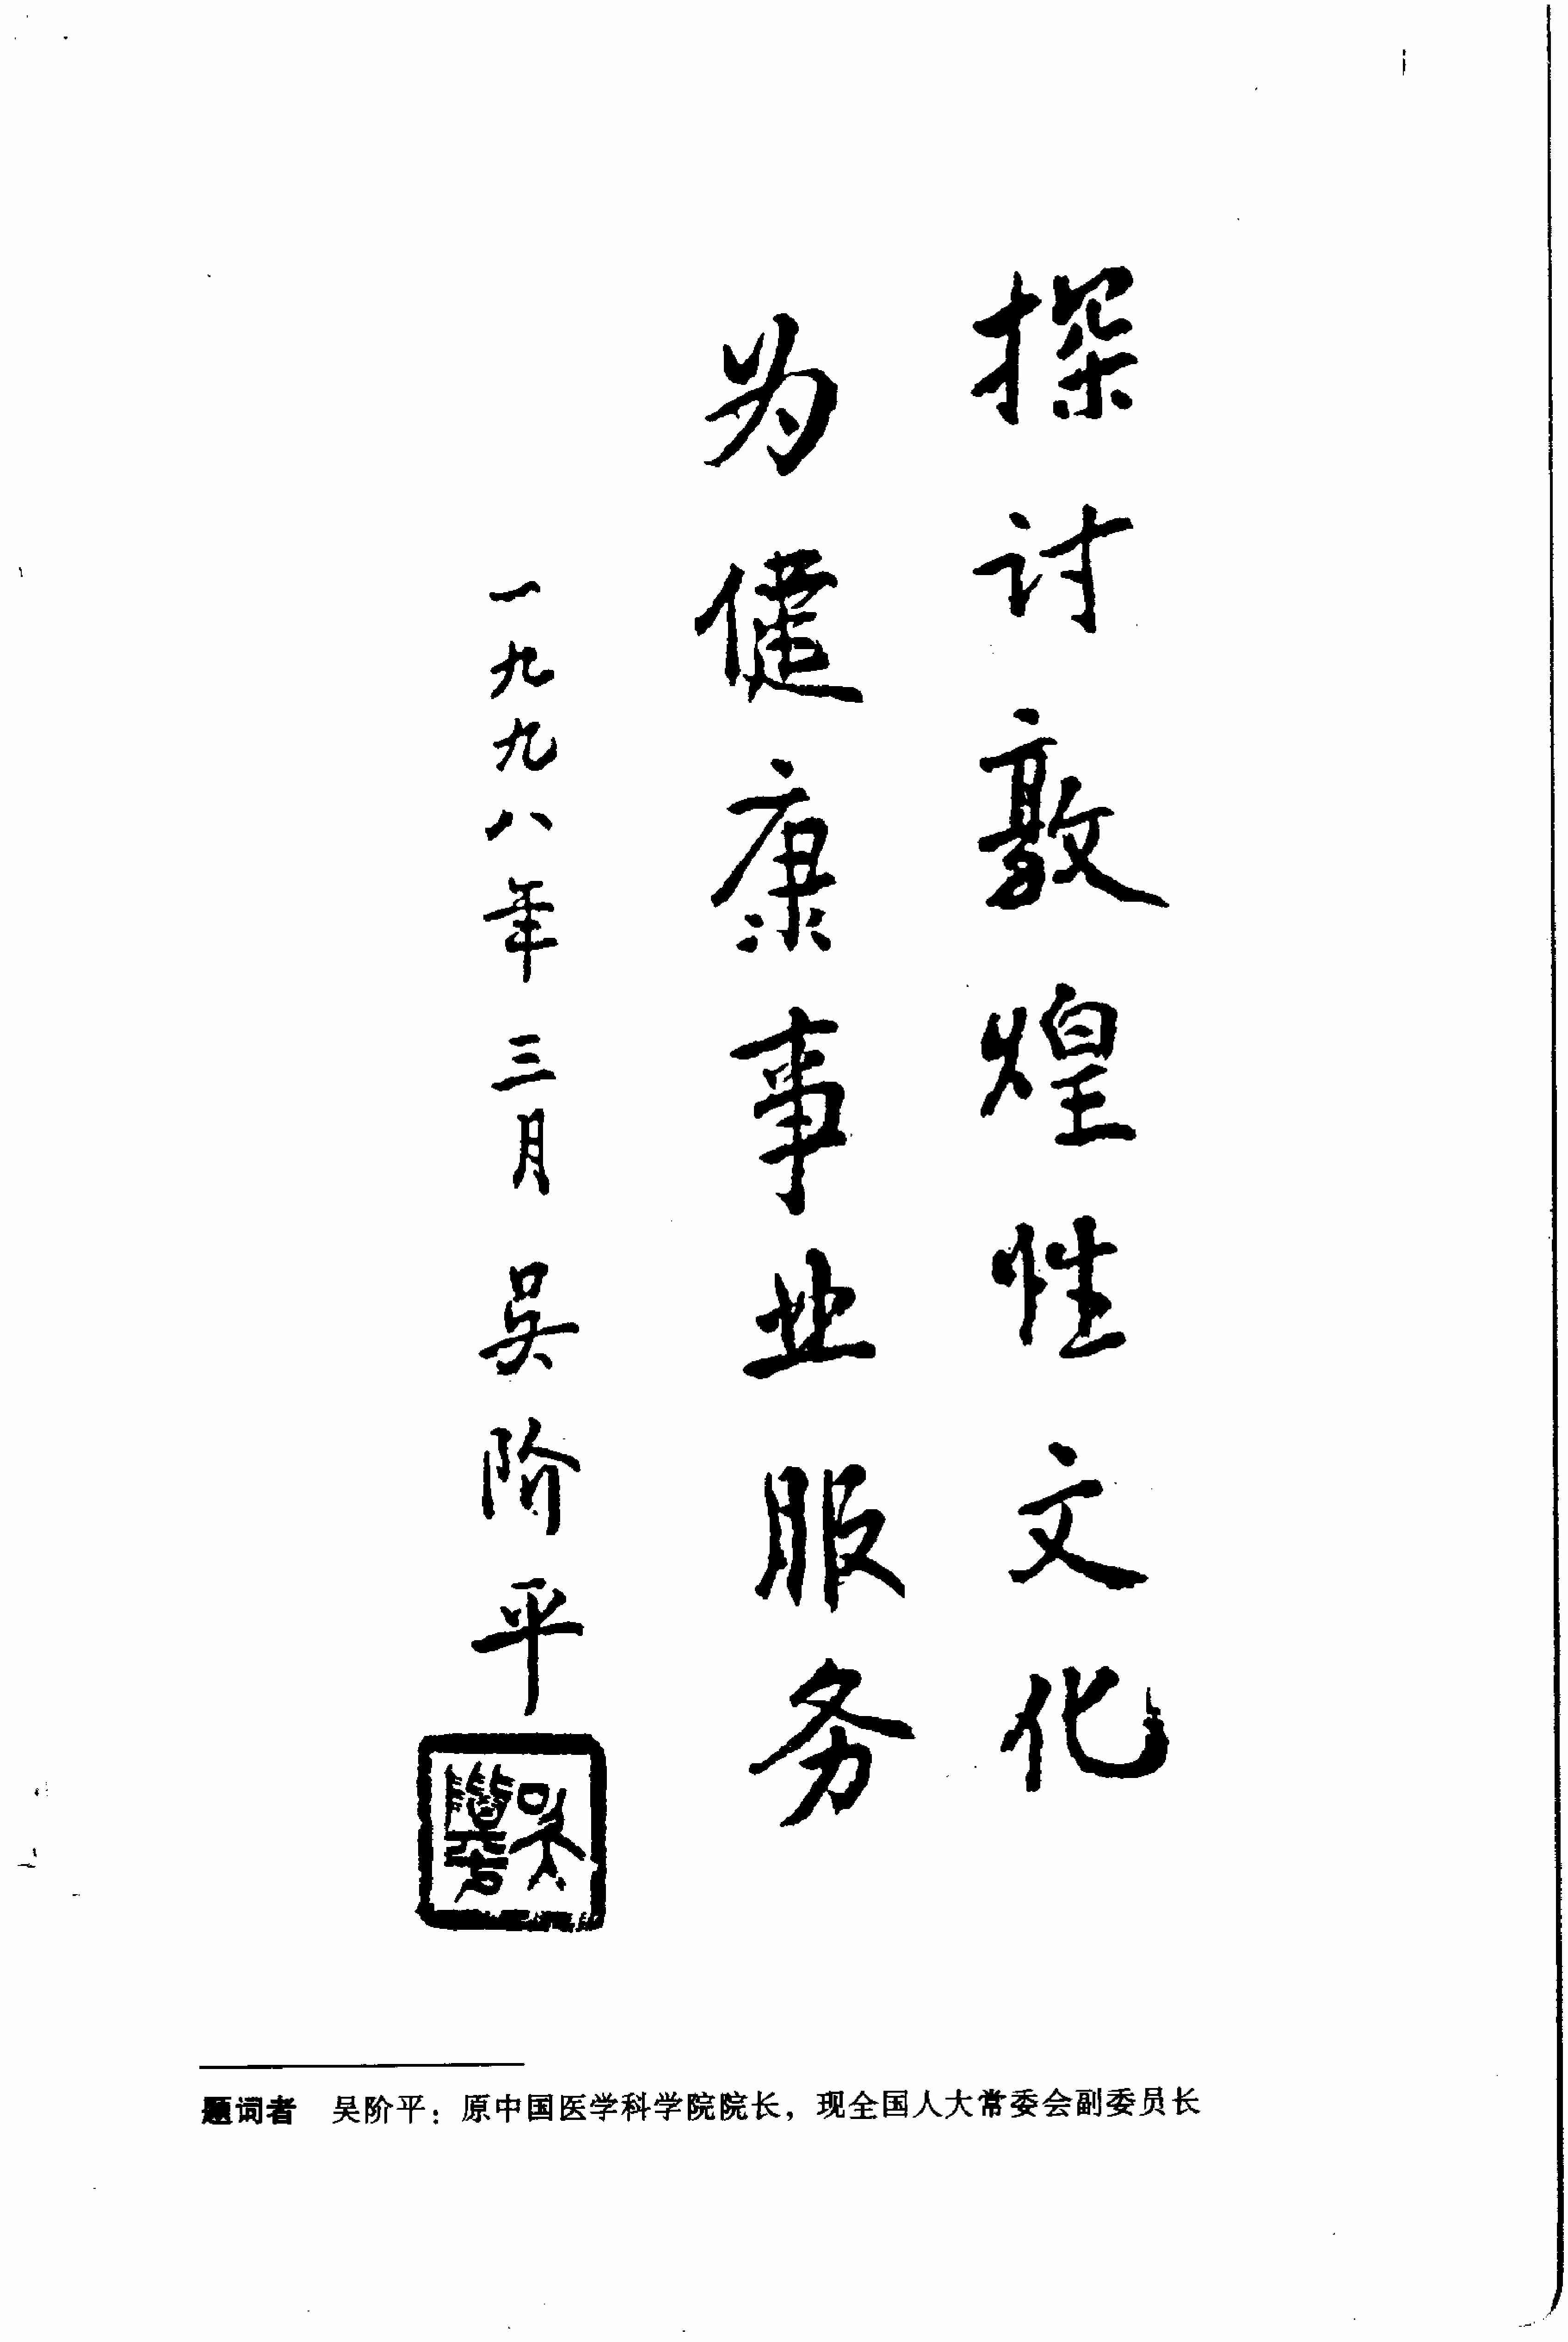 探讨敦煌性文化
为健康事业服务
一九九八年三月 吴阶平
题词者 吴阶平：原中国医学科学院院长，现全国人大常委会副委员长